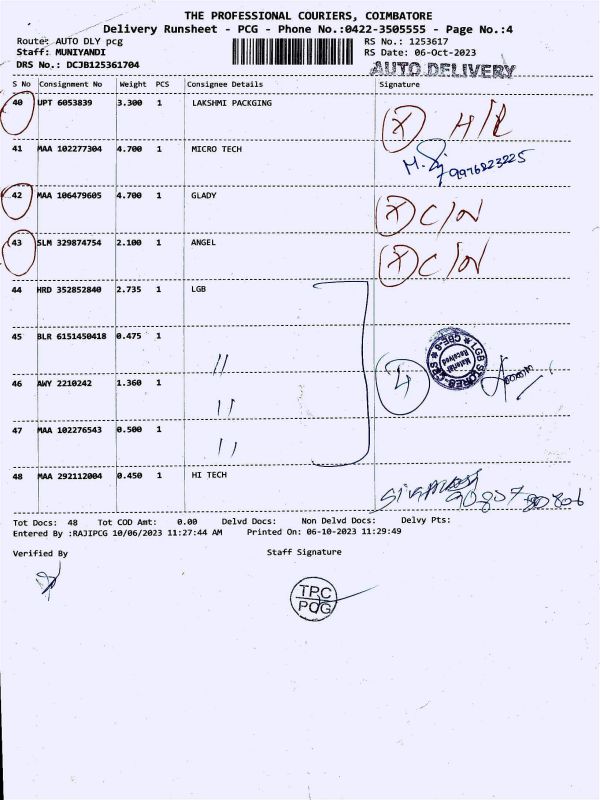 THE PROFESSIONAL COURIERS, COIMBATORE
Delivery Runsheet - PCG - Phone No.:0422-3505555 - Page No.:4
Route: AUTO DLY pcg RS No.: 1253617
Staff: MUNIYANDI RS Date: 06-Oct-2023
DRS No.: DCJB125361704 AUTO DELIVERY
S No Consignment No Weight PCS Consignee Details Signature
40 UPT 6053839 3.300 1 LAKSHMI PACKGING X
41 MAA 102277304 4.700 1 MICRO TECH
9976223225
42 MAA 106479605 4.700 1 GLADY X C/N
43 SLM 329874754 2.100 1 ANGEL X C/N
44 HRD 352852840 2.735 1 LGB
45 BLR 6151450418 0.475 1 "
46 AWY 2210242 1.360 1 " 4
47 MAA 102276543 0.500 1 "
48 MAA 292112004 0.450 1 HI TECH
Tot Docs: 48 Tot COD Amt: 0.00 Delvd Docs: Non Delvd Docs: Delvy Pts:
Entered By :RAJIPCG 10/06/2023 11:27:44 AM Printed On: 06-10-2023 11:29:49
Verified By Staff Signature
TPC
PCG